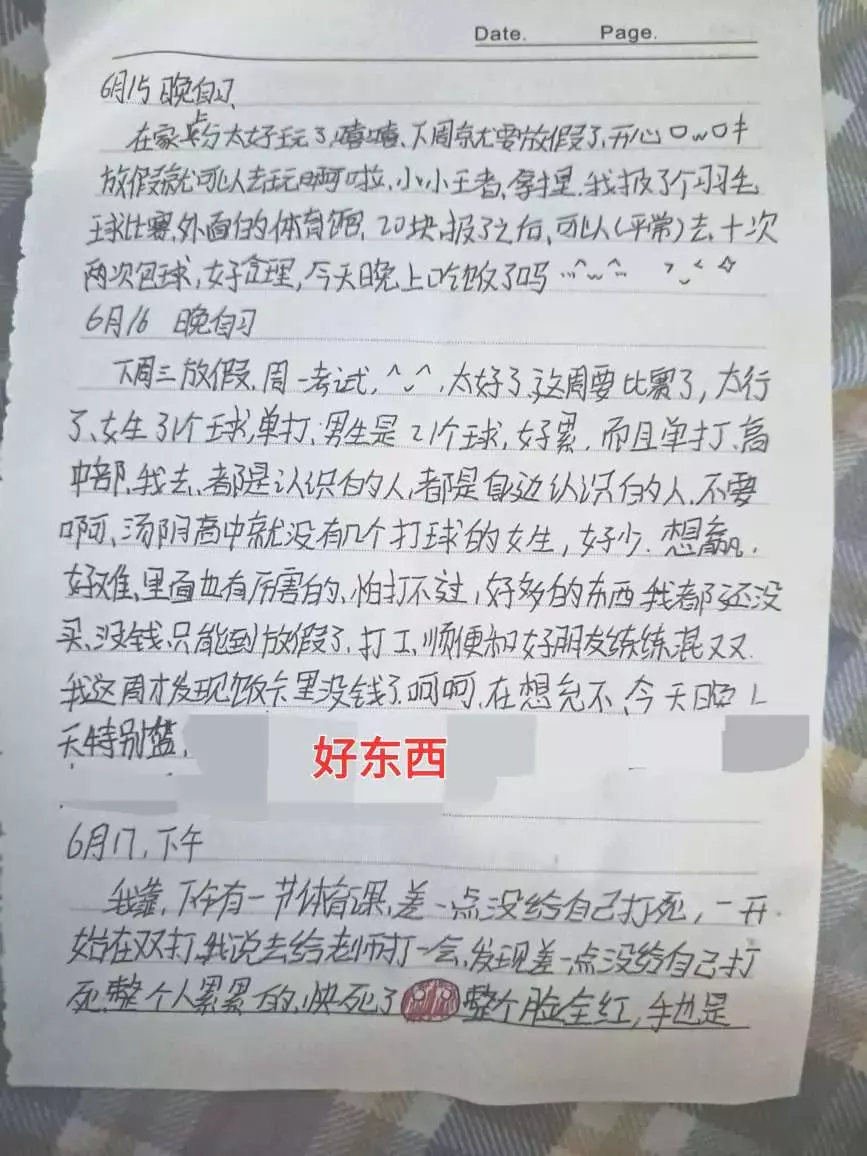 Date. Page.
6月15 晚自习
在家真的太好玩了,嘻嘻、下周末就要放假了,开心OwO
放假就可以去玩啊啦,小小王者、拿捏.我报了个羽毛
球比赛,外面的体育馆,20块,报了之后,可以(平常)去、十次
两次包球,好合理,今天晚上吃饭了吗
6月16 晚自习
下周三放假,周一考试,^~^,太好了,这周要比赛了,太行
了、女生31个球,单打,男生是21个球,好累.而且单打、高
中部、我去、都是认识的人,都是身边认识的人.不要
啊、汤阴高中就没有几个打球的女生,好少.想赢.
好难、里面也有厉害的、怕打不过,好多的东西我都还没
买、没钱,只能到放假了.打工、顺便和好朋友练练混双双.
我这周才发现饭卡里没钱了,呵呵,在想充不、今天晚上
天特别蓝.
好东西
6月17,下午
我靠,下午有一节体育课,差一点没给自己打死,一开
始在双打,我说去给老师打一会,发现差一点没给自己打
死,整个人累累的,快死了 整个脸全红,手也是